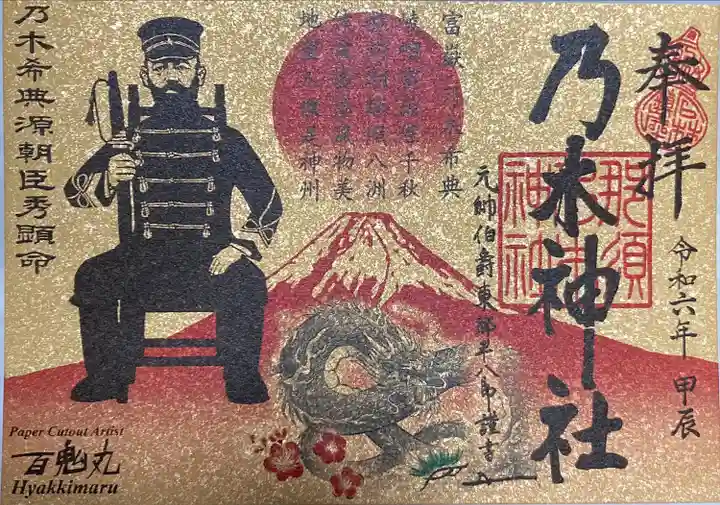 奉拝
令和六年 甲辰
乃木神社
那須
乃木
神社
元帥伯爵東郷平八郎謹書
富嶽 乃木希典
崚嶒富嶽聳千秋
赫灼朝暉照八洲
休説區區風物美
地靈人傑是神州
乃木希典源朝臣秀顕命
Paper Cutout Artist
百鬼丸
Hyakkimaru